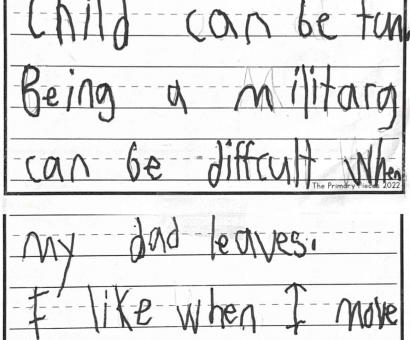 child can be fun.
Being a militarg
can be diffcult when
The Primary Pieces 2022
my dad leaves.
I like when I move